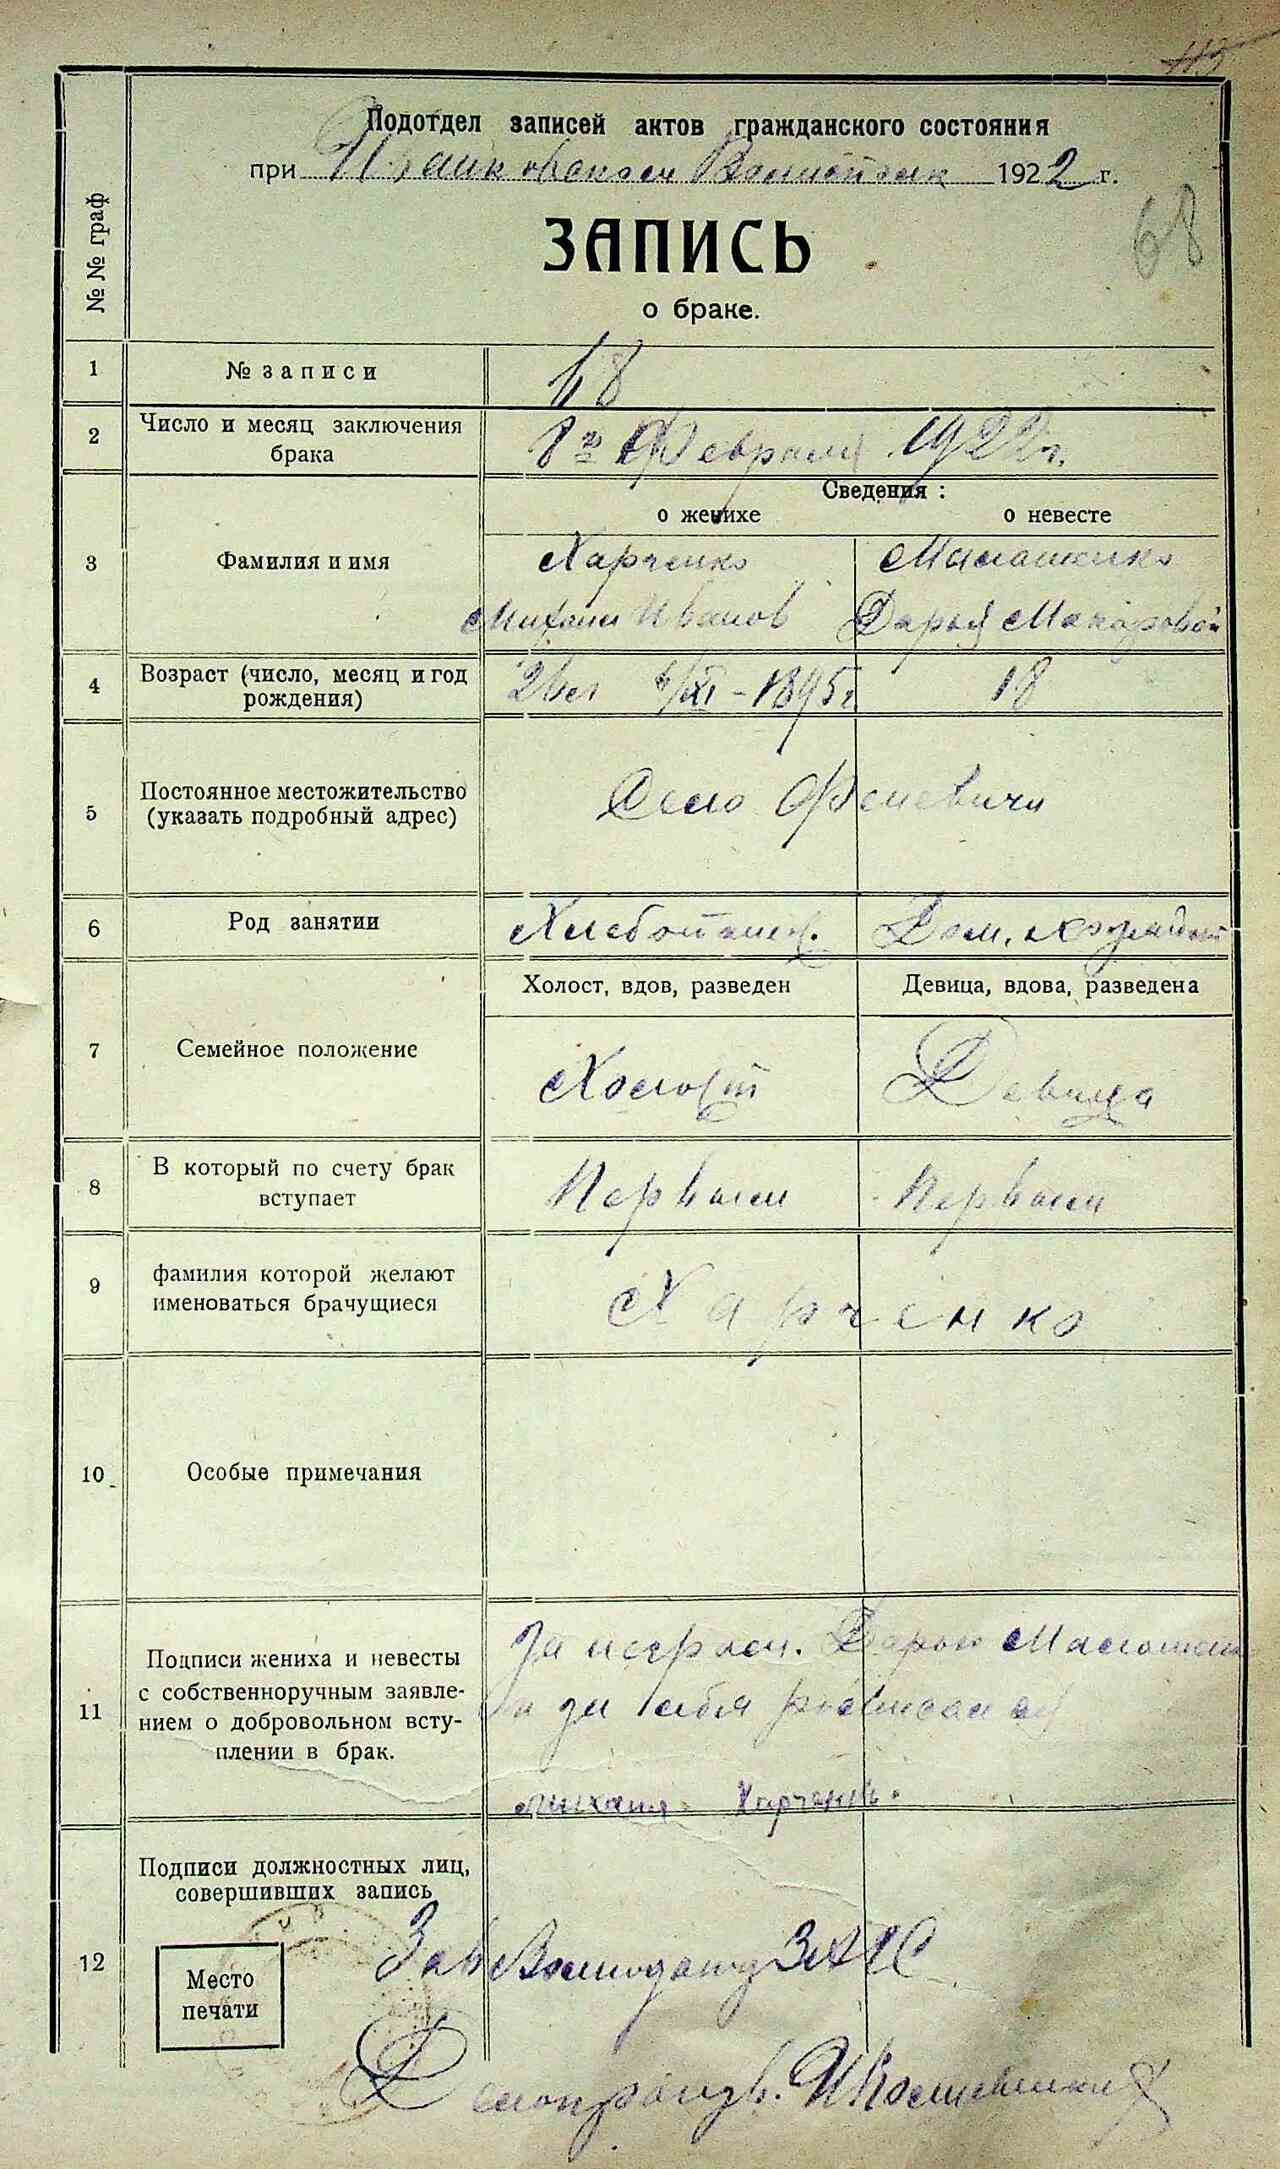 113
Подотдел записей актов гражданского состояния
при 1922 г.
68
ЗАПИСЬ
о браке.
№ № граф
1 № записи 68
2 Число и месяц заключения брака 8го Февраля 1922 г.
Сведения:
о женихе о невесте
3 Фамилия и имя Харченко Малашенко
Михаил Иванов Дарья Макаровой
4 Возраст (число, месяц и год рождения) 26 ел 6/XI - 1895 г 18
5 Постоянное местожительство (указать подробный адрес) Село Феневичи
6 Род занятии Хлебопашец. Дом. хозяйст
Холост, вдов, разведен Девица, вдова, разведена
7 Семейное положение Холост Девица
8 В который по счету брак вступает Первым Первым
9 фамилия которой желают именоваться брачущиеся Харченко
10 Особые примечания
11 Подписи жениха и невесты с собственноручным заявлением о добровольном вступлении в брак.
За неграм. Дарью Малашенко
и за себя росписался
михаил Харченко
12 Подписи должностных лиц, совершивших запись
Зав ЗАГС
Место
печати
Делопроизв.